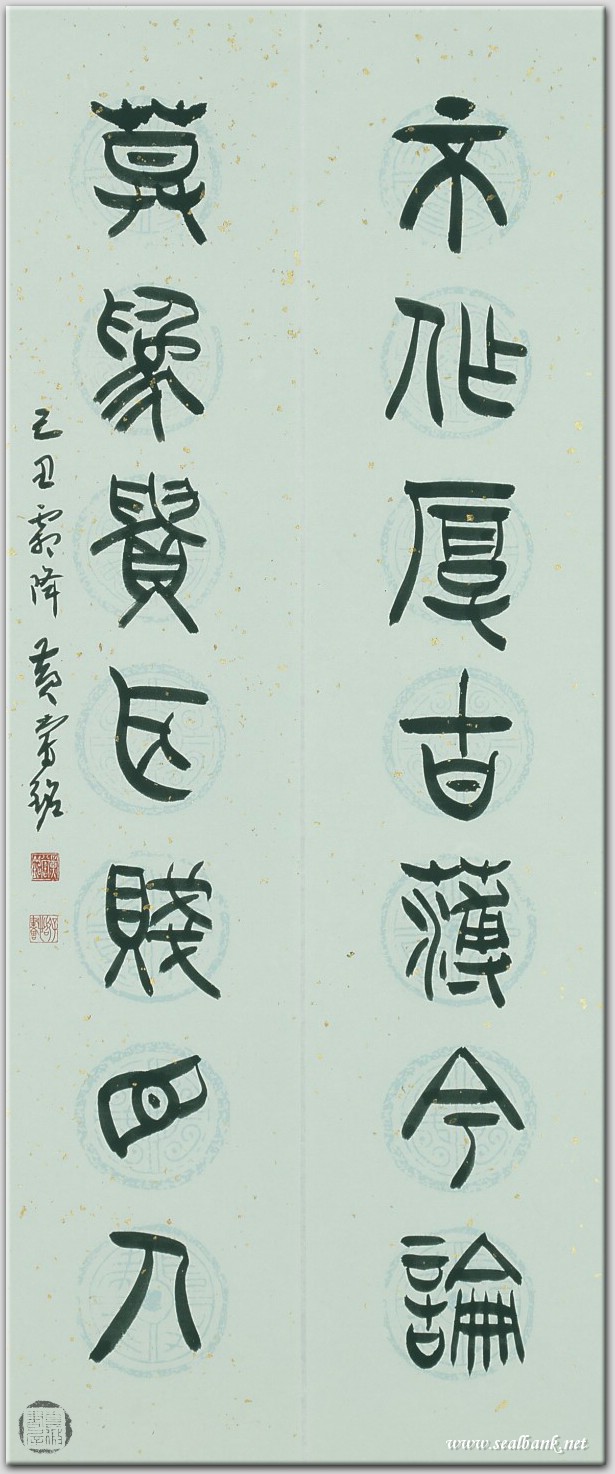 不作厚古薄今論
莫為貴耳賤目人
己丑霜降 黃嘗銘
www.sealbank.net